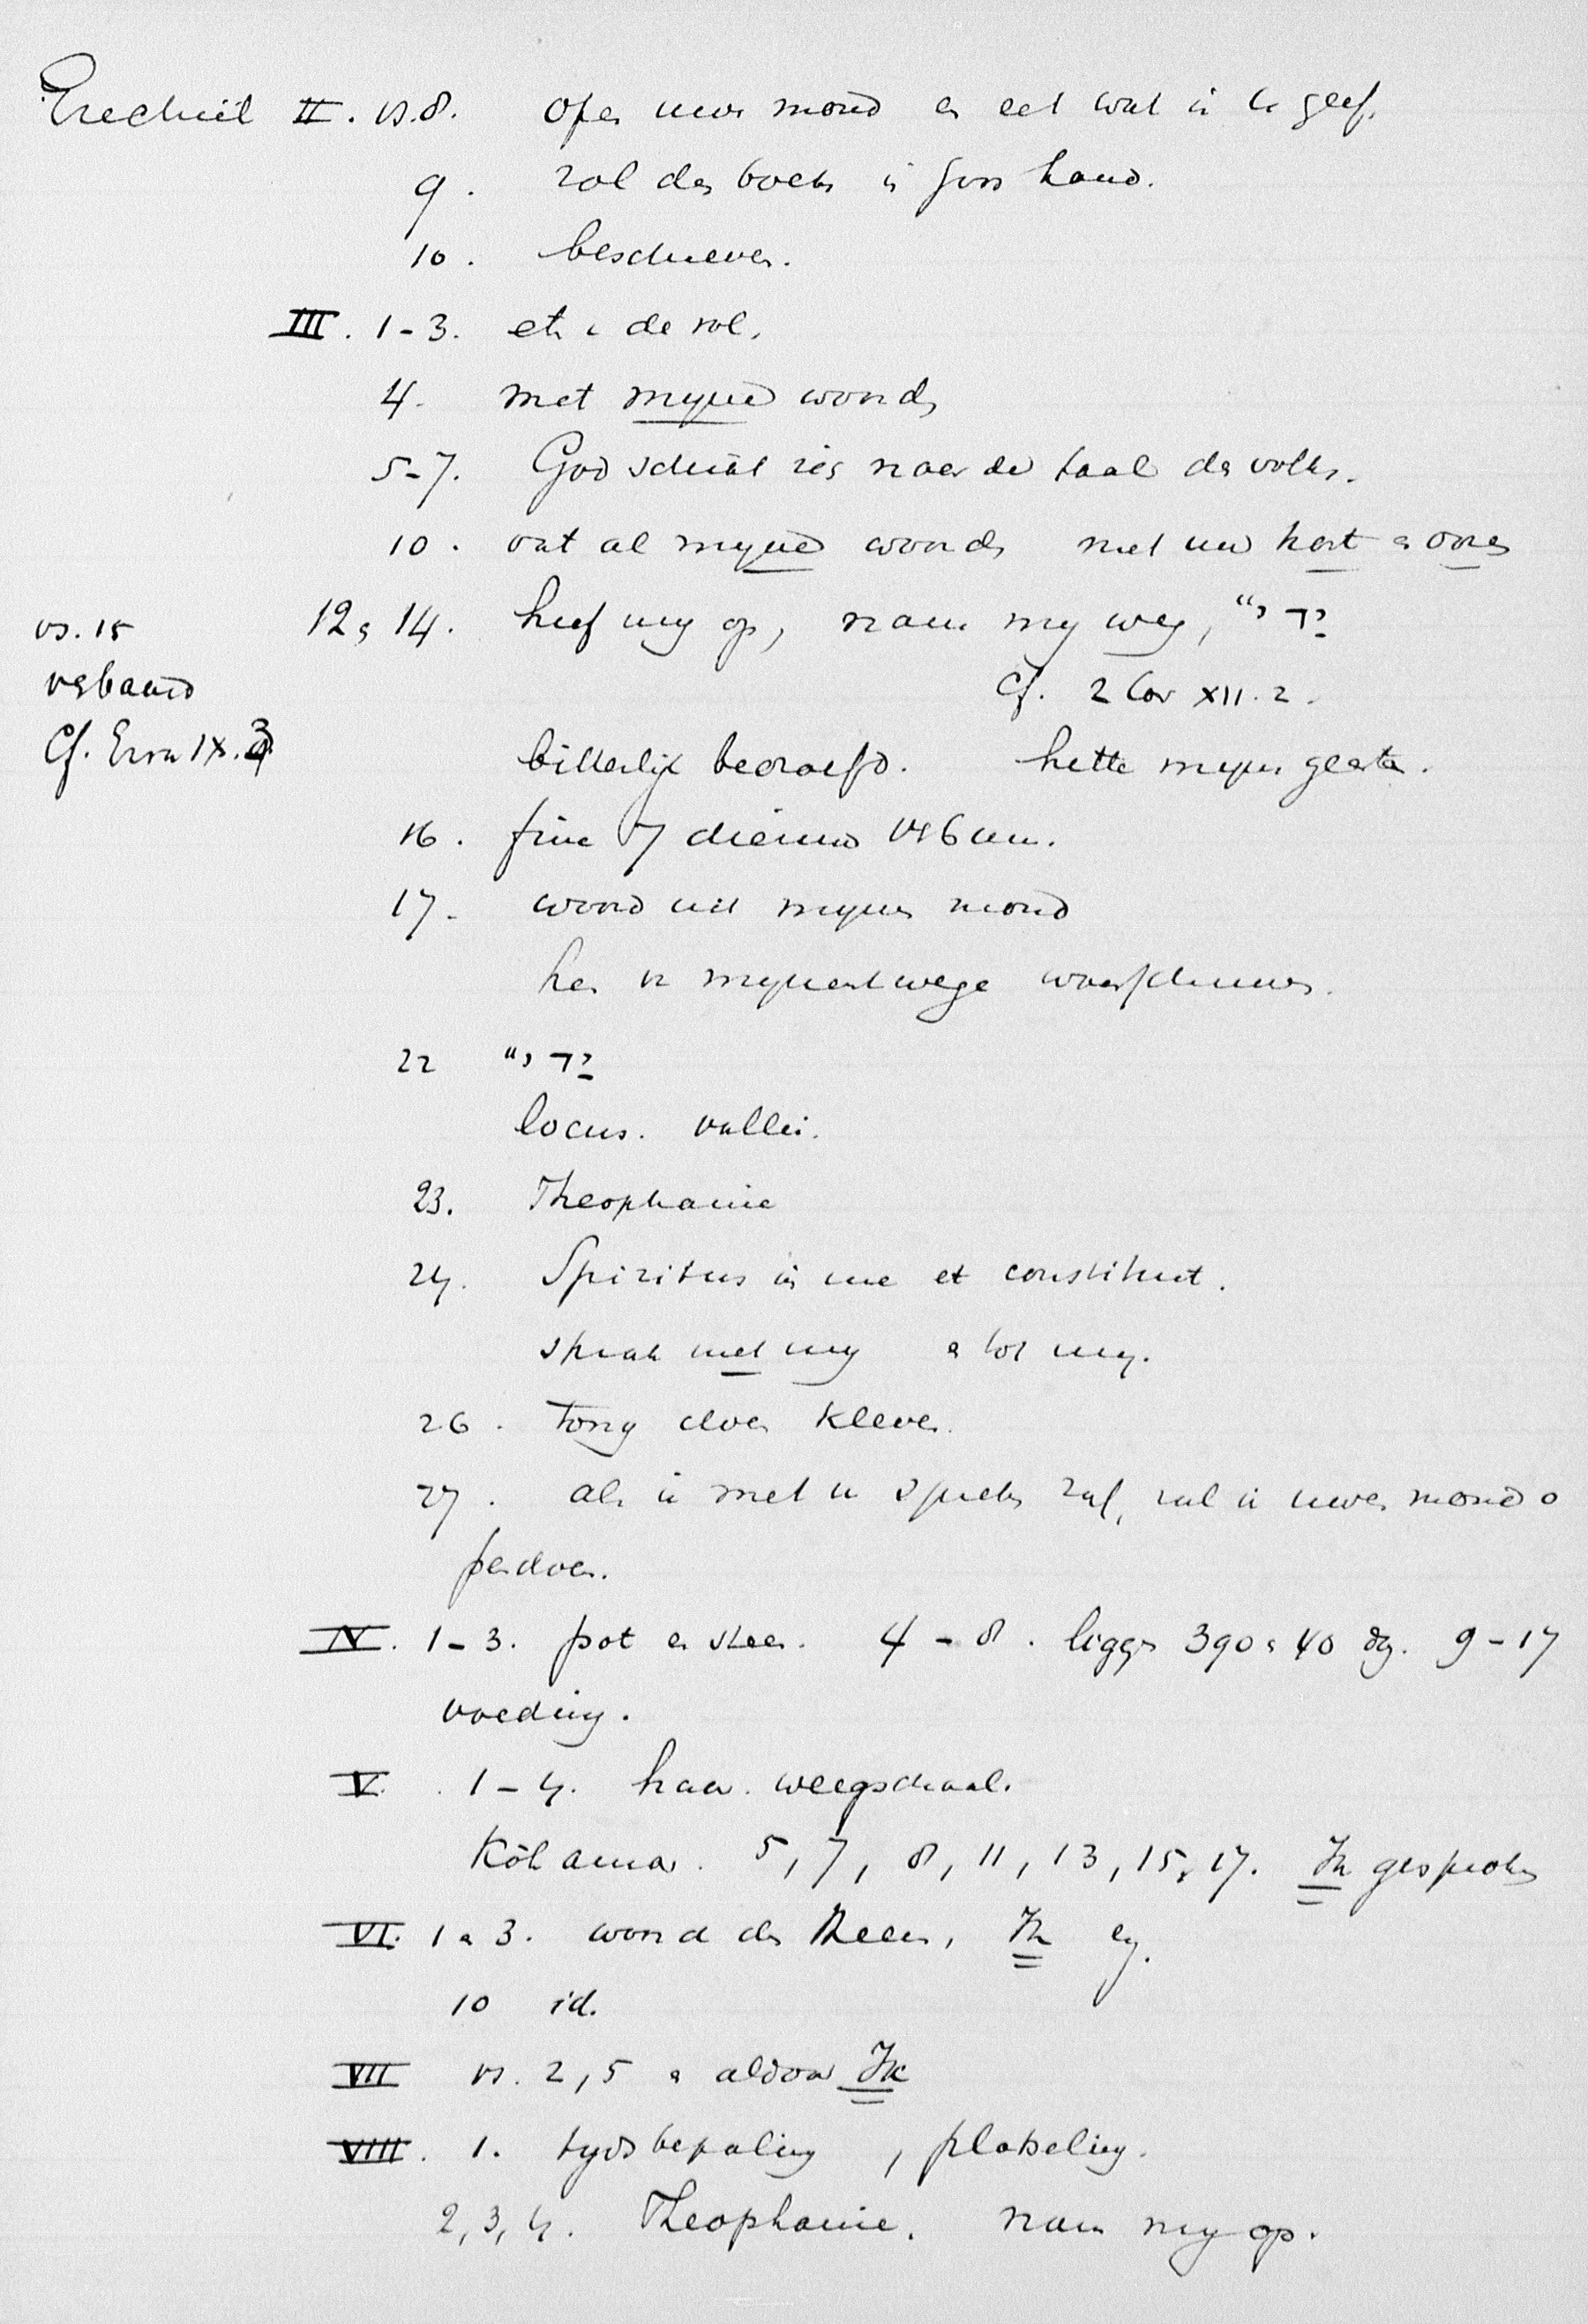 Ezechiël II. vs. 8. open uwen mond en eet wat ik u geef.
9. rol des boeks in Gods hand.
10. beschreven.
III. 1-3. eten de rol.
4. met myne woorden
5-7. God schikt zich naar de taal des volks.
10. vat al myne woorden met uw hart en ooren
12 en 14. hief my op, nam my weg, יד "י
vs. 15
verbaasd
Cf. Ezra IX. 3
Cf. 2 Cor XII. 2.
bitterlijk bedroefd. hitte mijns geestes.
16. fine 7 dierum verbum.
17. woord uit mynen mond
hen van mynentwege waarschuwen.
22 יד "י
locus. vallei.
23. Theophanie
24. Spiritus in me et constituit.
sprak met my en tot my.
26. tong doen kleven.
27. als ik met u spreken zal, zal ik uwen mond o
pendoen.
IV. 1-3. pot en steen. 4-8. liggen 390 en 40 dg. 9-17
voeding.
V. 1-4. haar. weegschaal.
Kôh amar. 5, 7, 8, 11, 13, 15, 17. Ik gesproken
VI. 1 en 3. woord des Heeren, Ik
10 id.
VII vs. 2, 5 en aldoor Ik
VIII. 1. tydsbepaling, plotseling.
2, 3, 4. Theophanie. nam my op.